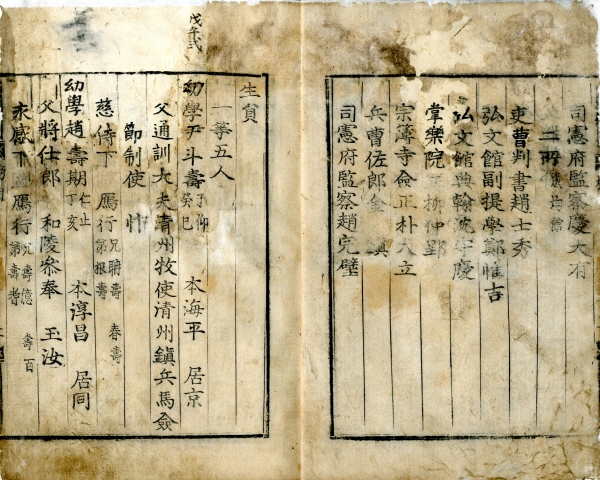 司憲府監察慶大有
二所 成均館
吏曹判書趙士秀
弘文館副提學鄭惟吉
弘文館典翰沈守慶
掌樂院正柳仲郢
宗簿寺僉正朴大立
兵曹佐郎金
司憲府監察趙完璧
戊午式
生員
一等五人
幼學尹斗壽 子仰 癸巳 本海平 居京
父通訓大夫淸州牧使淸州鎭兵馬僉
節制使 忭
慈侍下 鴈行 兄聃壽 春壽 弟根壽
幼學趙壽期 仁止 丁亥 本淳昌 居同
父將仕郎 和陵參奉 玉汝
永感下 鴈行 兄壽億 壽百 弟壽耆